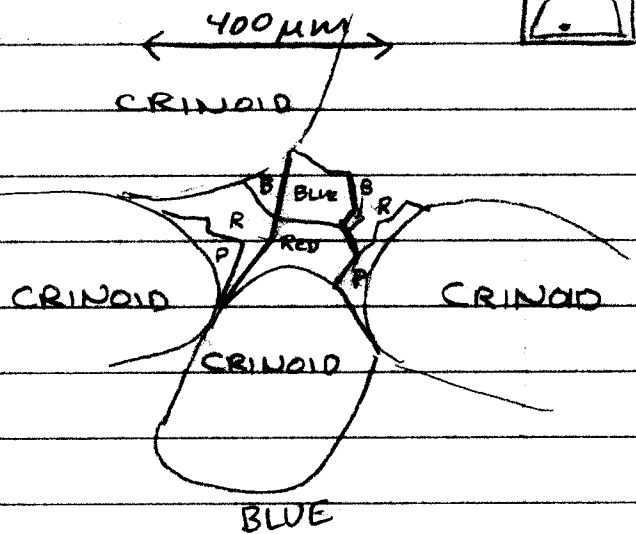 400 μm
CRINOID
B BLUE B
R R
RED
P P
CRINOID CRINOID
CRINOID
BLUE